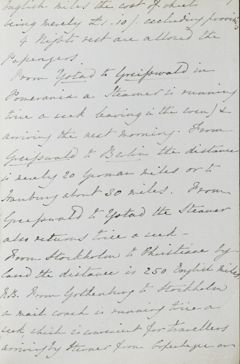 English miles the cost of which
being merely £1. 10/. excluding provis
4 Nights rest are allowed the
Passengers.
From Ystad to Greifswald in
Pomerania a Steamer is running
twice a week leaving in the even/ &
arriving the next morning. From
Greifswald to Berlin the distance
is nearly 20 German miles or to
about 30 miles. From
Greifswald to Ystad the Steamer
also returns twice a week –
From Stockholm to by
land the distance is 250 English miles
N.B. From Gothenburg to Stockholm
a mail coach is running twice a
week which is convenient for travellers
arriving by Steamer from Copenhagen or